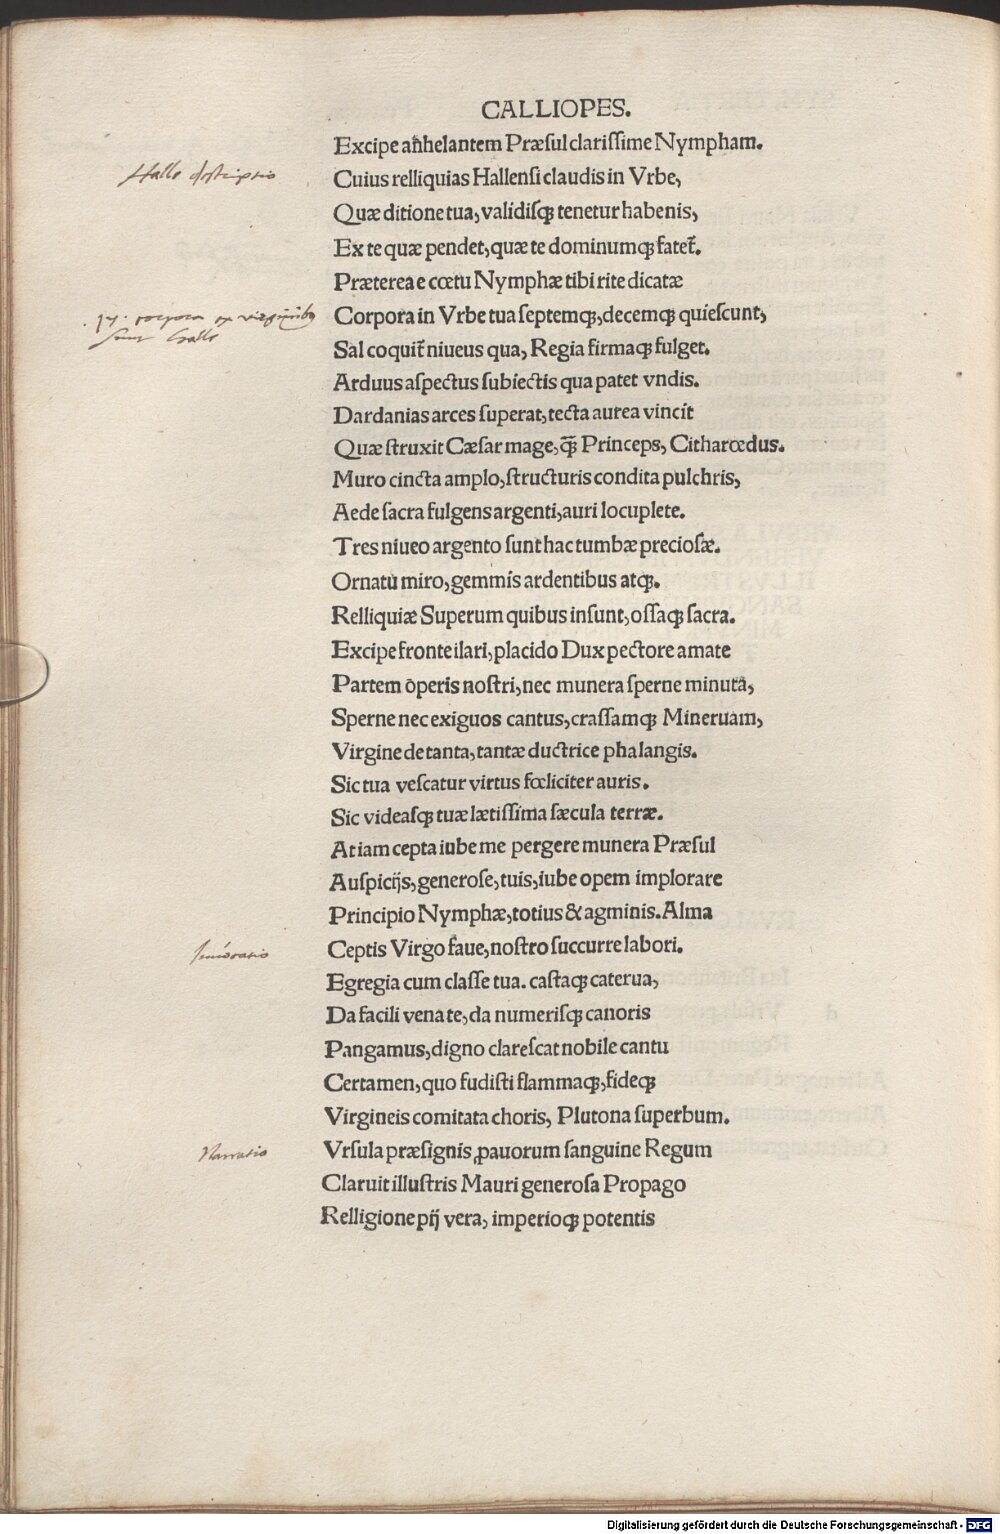 CALLIOPES.
Excipe anhelantem Præſul clariſſime Nympham.
Halle deſcriptio
Cuius relliquias Hallenſi claudis in Vrbe,
Quæ ditione tua, validiſqꝫ tenetur habenis,
Ex te quæ pendet, quæ te dominumqꝫ fatet̃.
Præterea e cœtu Nymphæ tibi rite dicatæ
17. corpora ex virginibꝰ
ſunt Halle
Corpora in Vrbe tua ſeptemqꝫ, decemqꝫ quieſcunt,
Sal coquit̃ niueus qua, Regia firmaqꝫ fulget.
Arduus aſpectus ſubiectis qua patet vndis.
Dardanias arces ſuperat, tecta aurea vincit
Quæ ſtruxit Cæſar mage, qꝫ̃ Princeps, Citharœdus.
Muro cincta amplo, ſtructuris condita pulchris,
Aede ſacra fulgens argenti, auri locuplete.
Tres niueo argento ſunt hac tumbæ precioſæ.
Ornatu miro, gemmis ardentibus atqꝫ.
Relliquiæ Superum quibus inſunt, oſſaqꝫ ſacra.
Excipe fronte ilari, placido Dux pectore amate
Partem operis noſtri, nec munera ſperne minuta,
Sperne nec exiguos cantus, craſſamqꝫ Mineruam,
Virgine de tanta, tantæ ductrice phalangis.
Sic tua veſcatur virtus fœliciter auris.
Sic videaſqꝫ tuæ lætiſſima ſæcula terræ.
At iam cepta iube me pergere munera Præſul
Auſpicijs, generoſe, tuis, iube opem implorare
Principio Nymphæ, totius & agminis. Alma
Inuocatio
Ceptis Virgo faue, noſtro ſuccurre labori.
Egregia cum claſſe tua. caſtaqꝫ caterua,
Da facili vena te, da numeriſqꝫ canoris
Pangamus, digno clareſcat nobile cantu
Certamen, quo fudiſti flammaqꝫ, fideqꝫ
Virgineis comitata choris, Plutona ſuperbum.
Narratio
Vrſula præſignis ꝓauorum ſanguine Regum
Claruit illuſtris Mauri generoſa Propago
Relligione pij vera, imperioqꝫ potentis
Digitalisierung gefördert durch die Deutsche Forschungsgemeinschaft - DFG